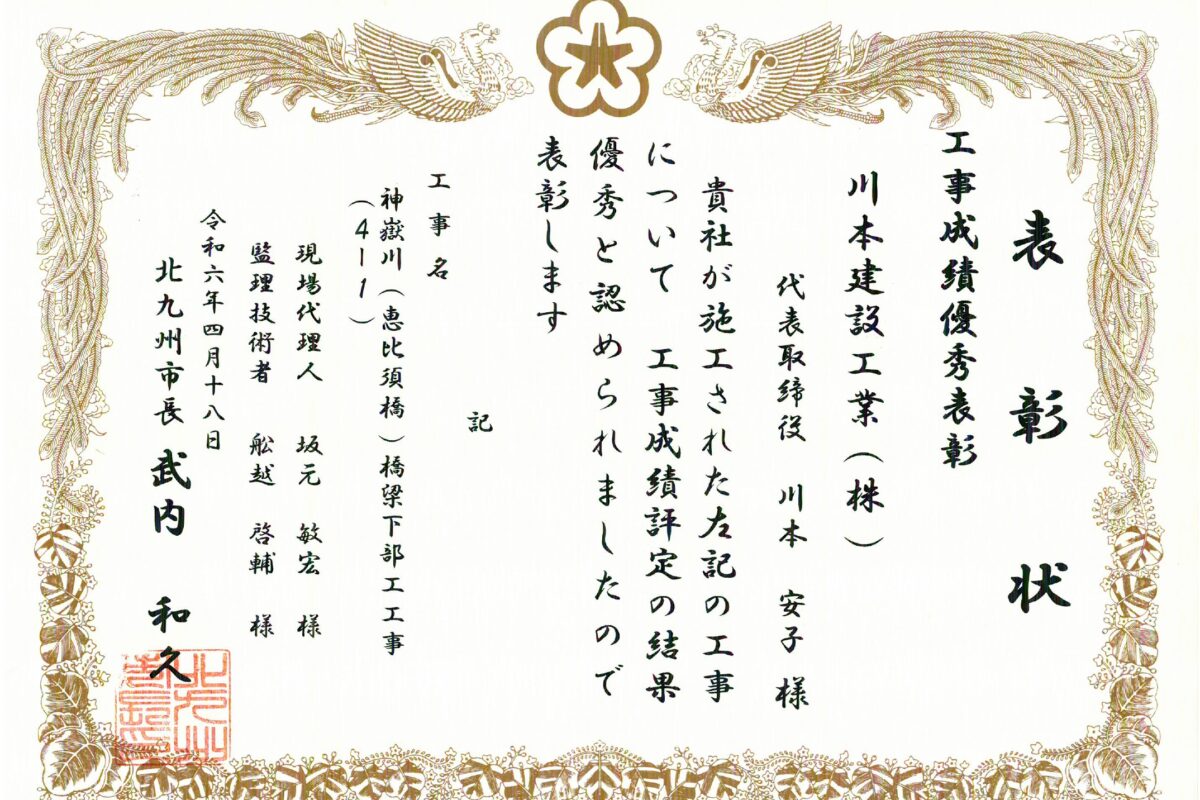 表彰状
工事成績優秀表彰
川本建設工業（株）
代表取締役 川本 安子 様
貴社が施工された左記の工事
について 工事成績評定の結果
優秀と認められましたので
表彰します
記
工事名
神嶽川（恵比須橋）橋梁下部工工事
（4－1）
現場代理人 坂元 敏宏 様
監理技術者 舩越 啓輔 様
令和六年四月十八日
北九州市長 武内 和久